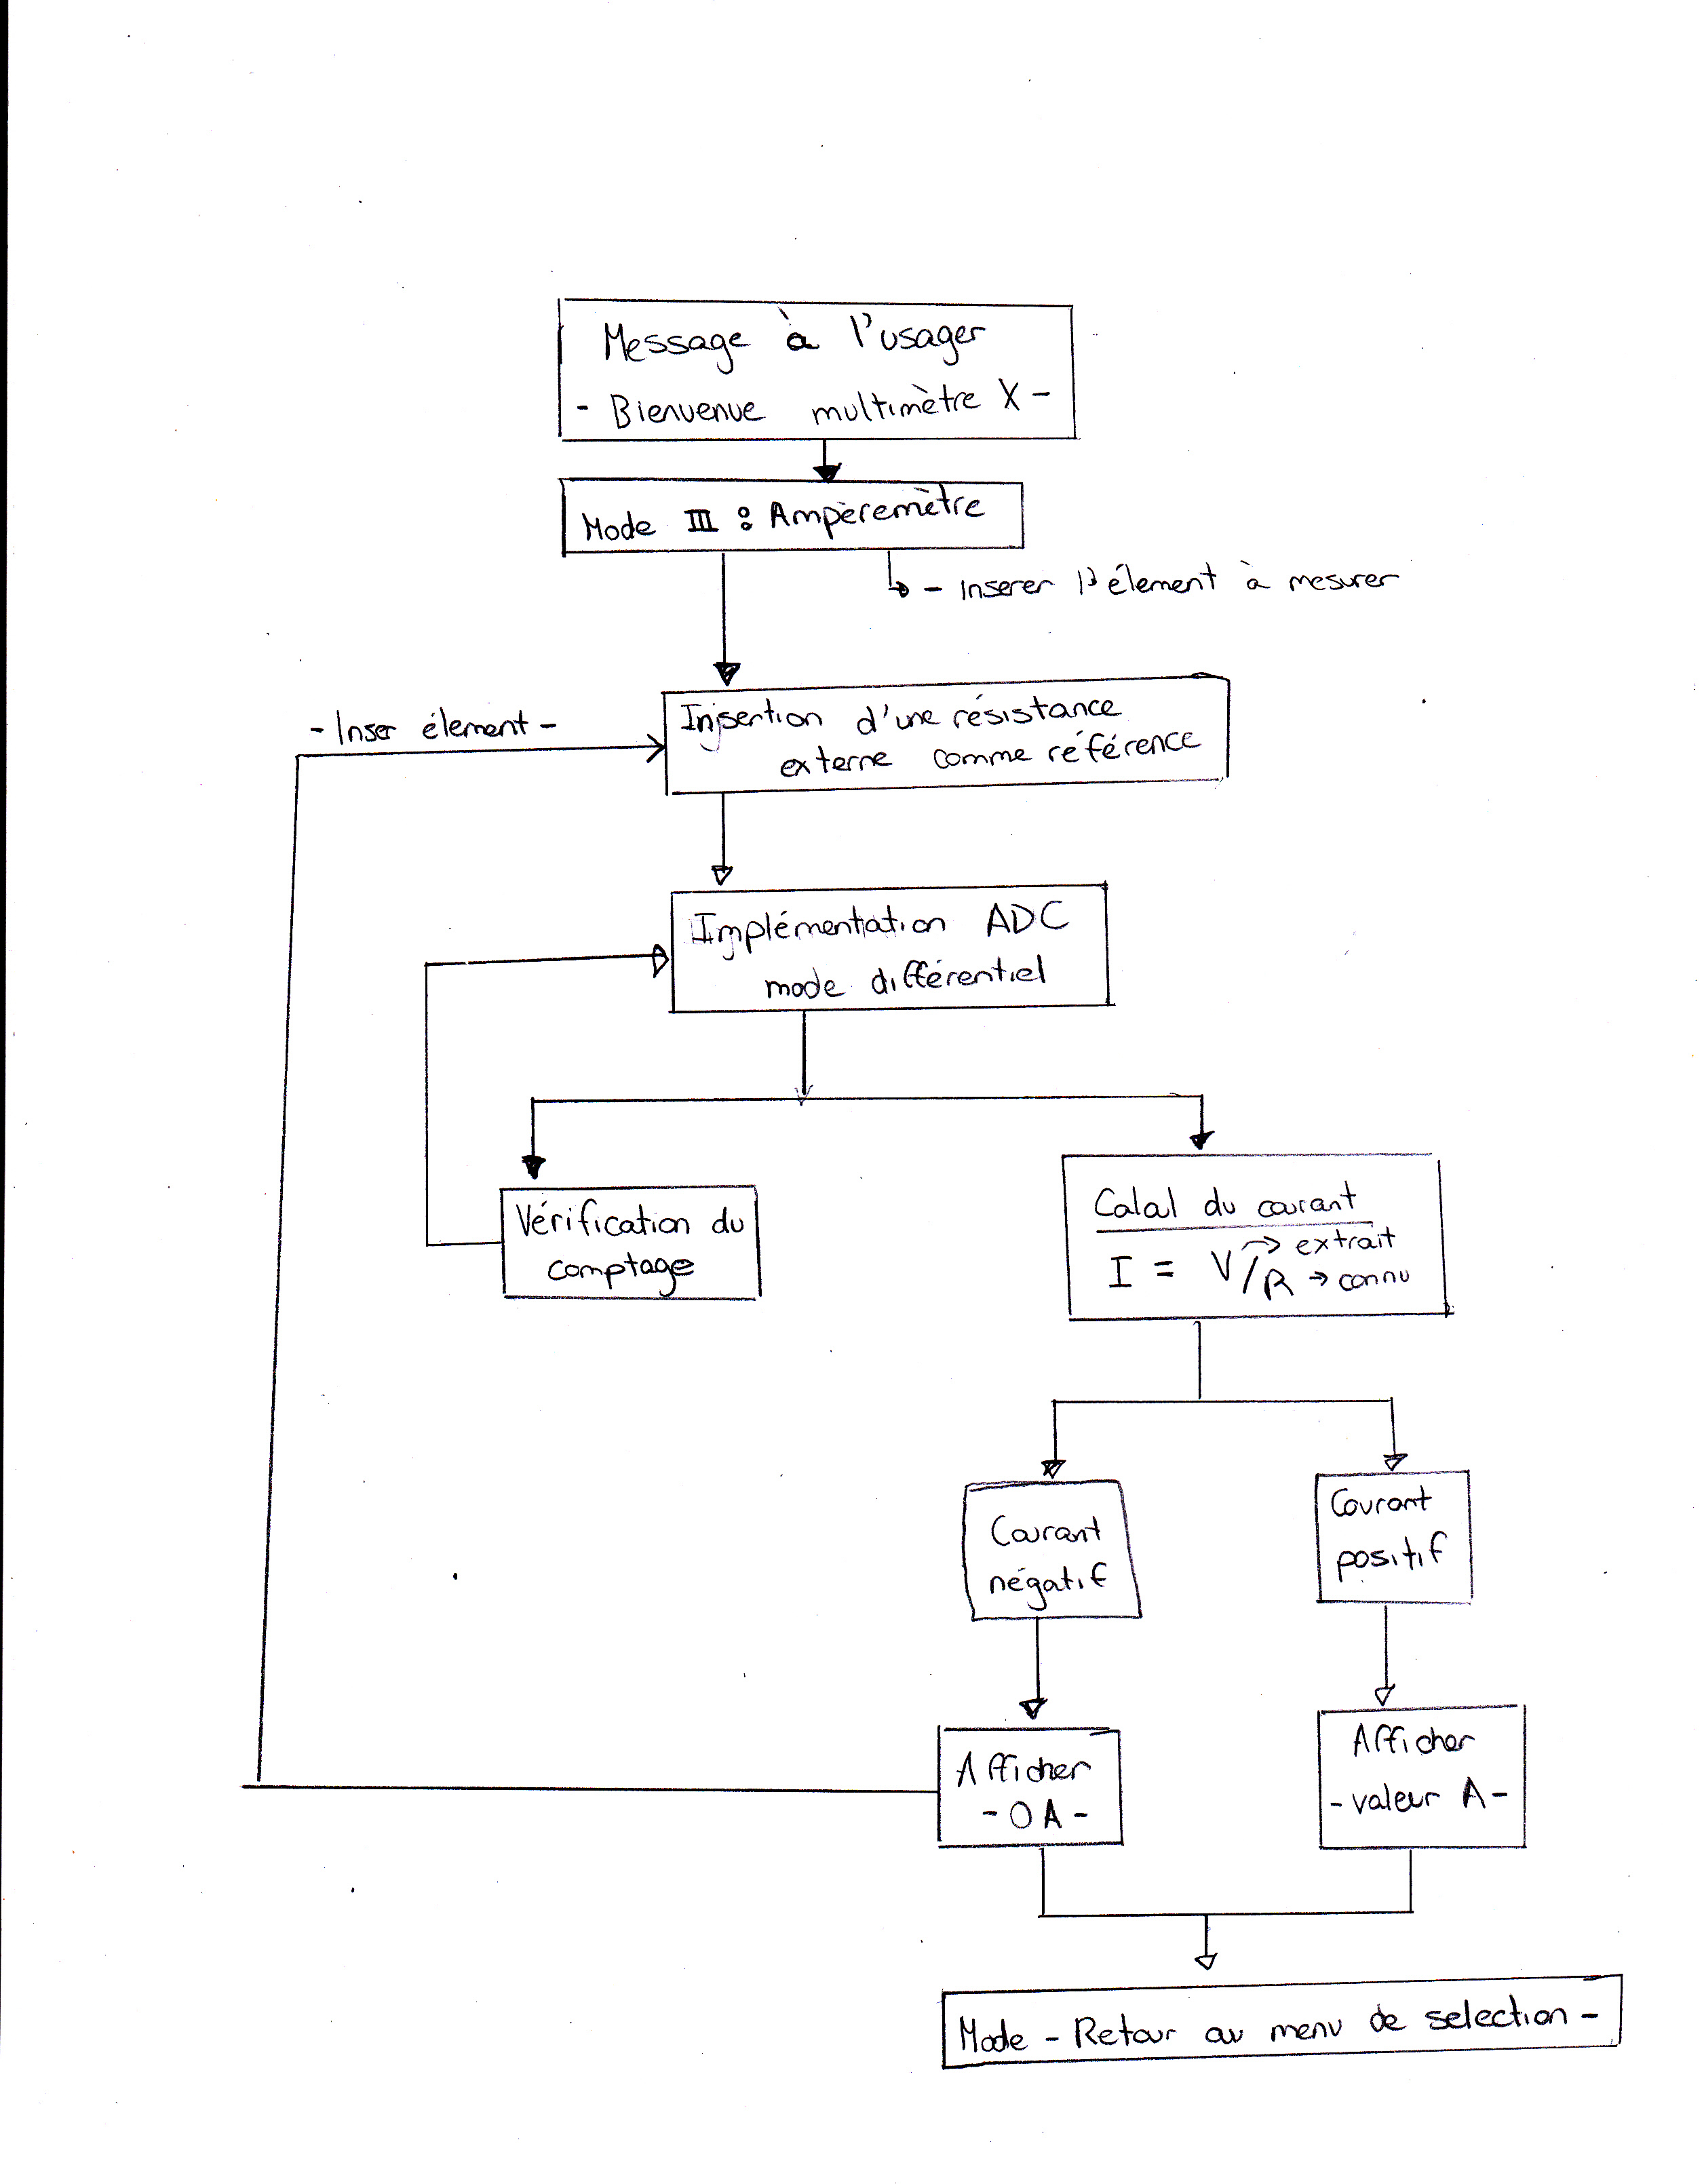 Message à l'usager
- Bienvenue multimètre X -
Mode III : Ampèremètre
- Inserer l'élement à mesurer
- Inser élement -
Insertion d'une résistance
externe comme référence
Implémentation ADC
mode différentiel
Vérification du
comptage
Calcul du courant
I = V/R → extrait
→ connu
Courant
négatif
Courant
positif
Afficher
- 0 A -
Afficher
- valeur A -
Mode - Retour au menu de selection -